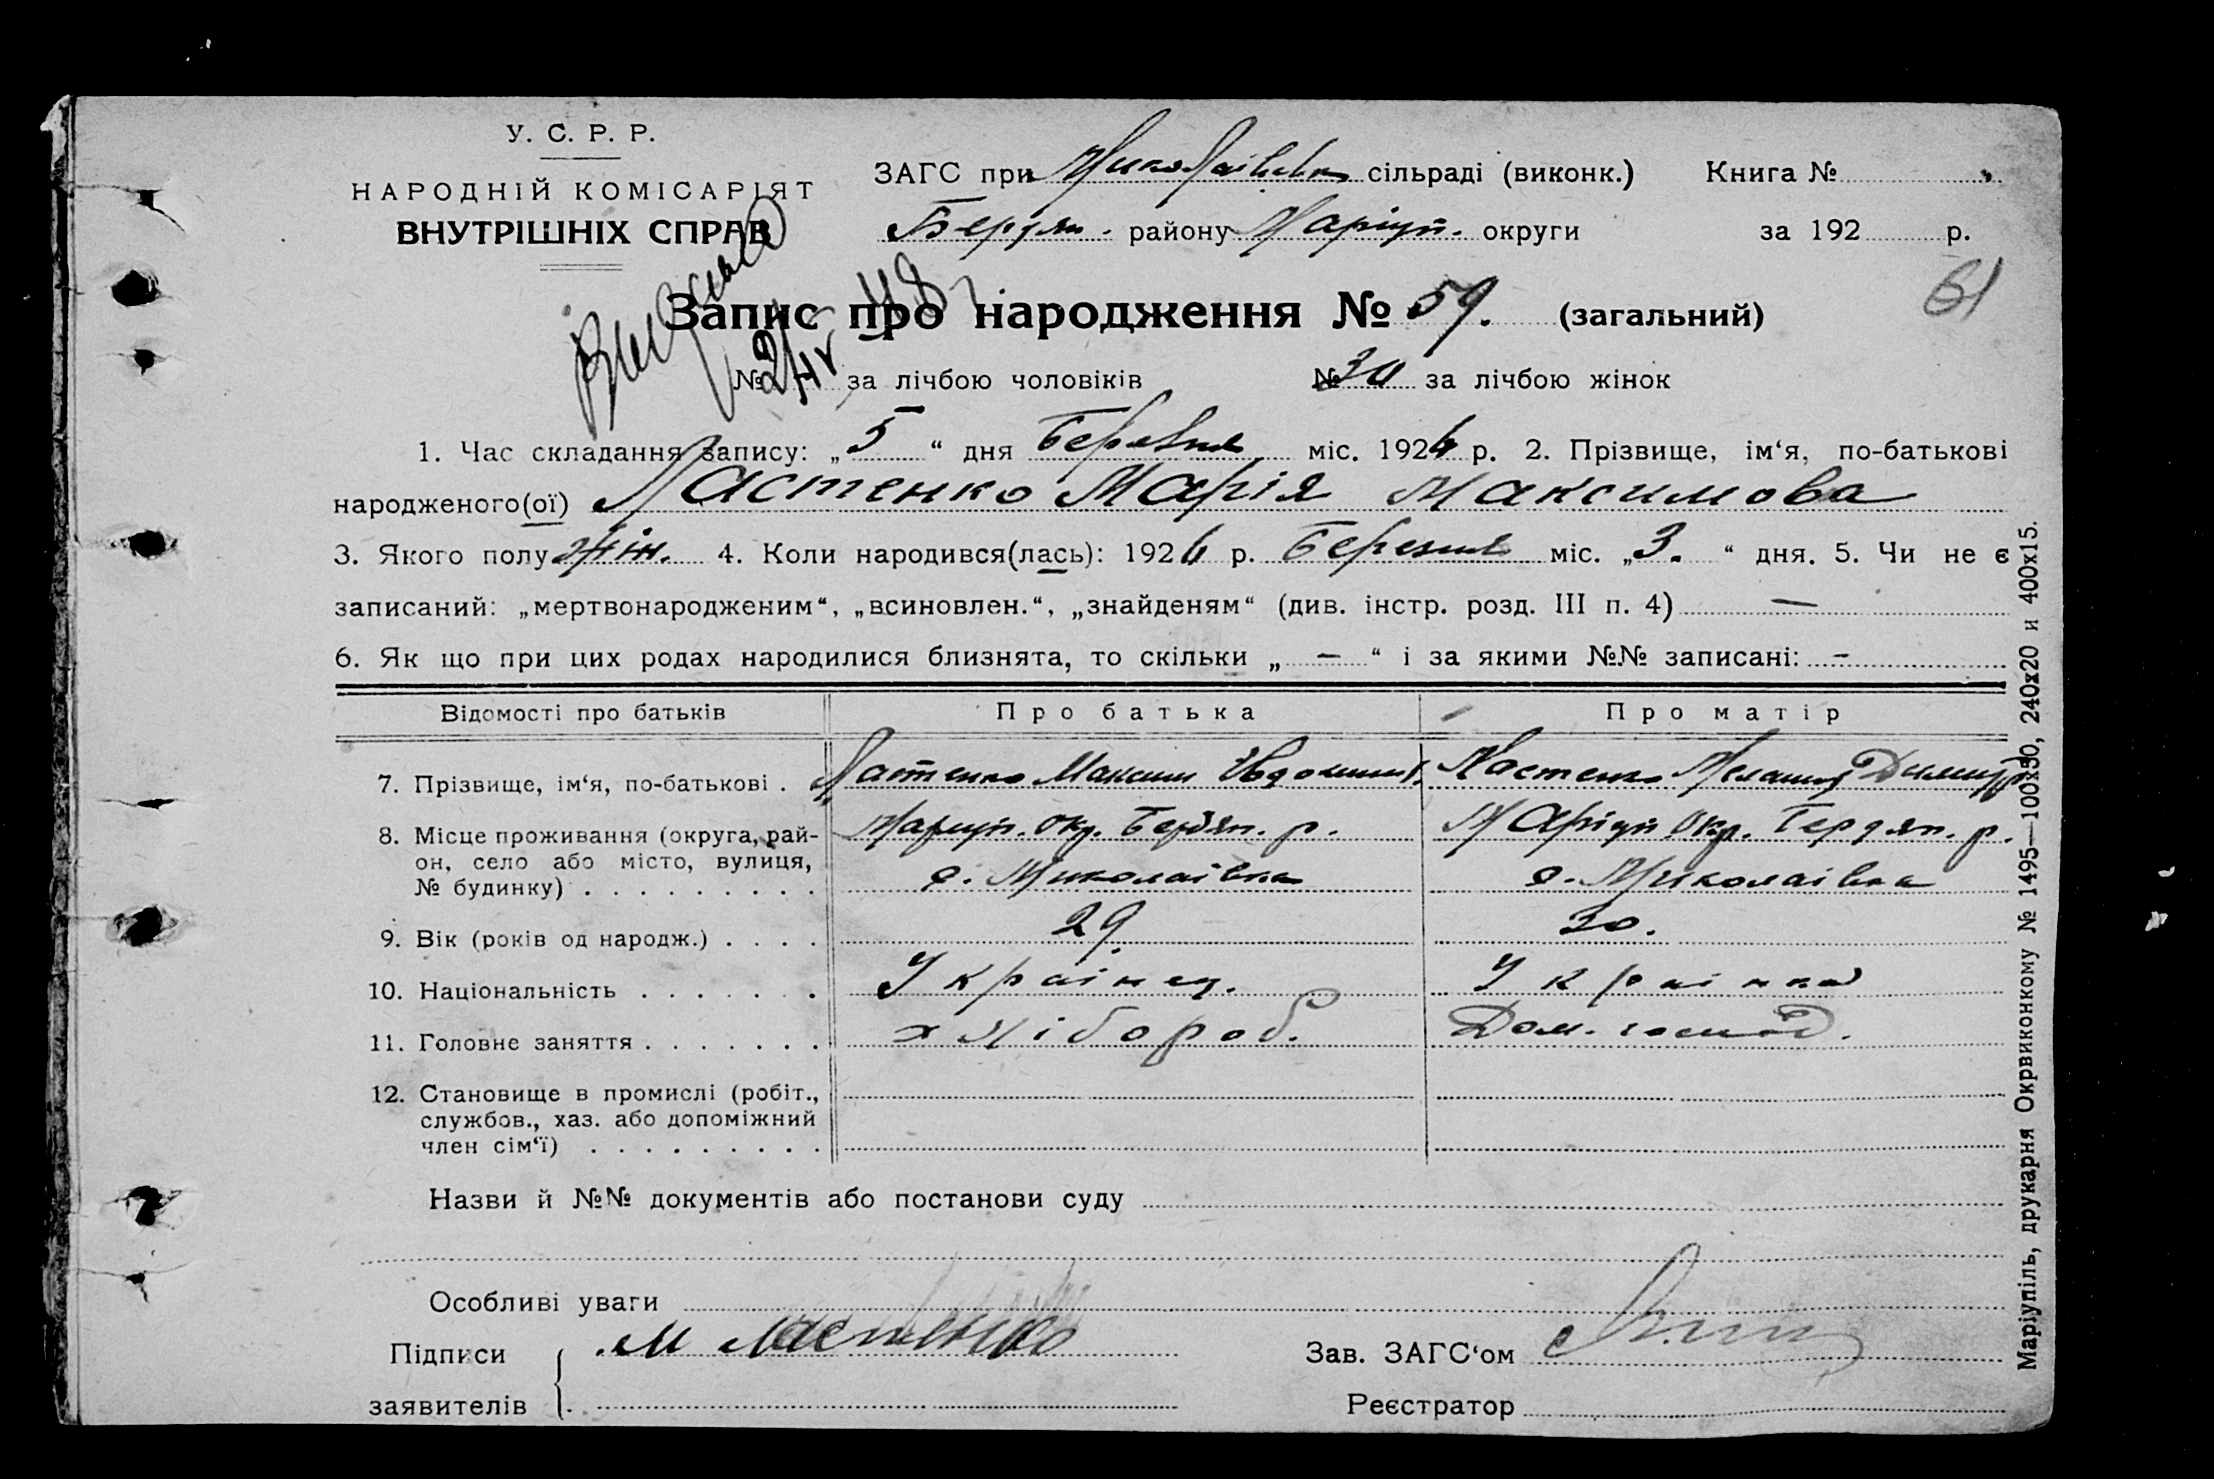 У. С. Р. Р.
НАРОДНІЙ КОМІСАРІЯТ
ВНУТРІШНІХ СПРАВ
ЗАГС при Миколаівськ сільраді (виконк.) Книга №
Бердян. району Маріуп. округи за 192 р.
61
Запис про народження № 59. (загальний)
№ за лічбою чоловіків № 30 за лічбою жінок
1. Час складання запису: „ 5 “ дня Березня міс. 1926 р. 2. Прізвище, ім‘я, по-батькові
народженого(ої) Ластенко Марія Максимова
3. Якого полу жін. 4. Коли народився(лась): 1926 р. Березня міс. „ 3. “ дня. 5. Чи не є
записаний: „мертвонародженим“, „всиновлен.“, „знайденям“ (див. інстр. розд. III п. 4) —
6. Як що при цих родах народилися близнята, то скільки „ — “ і за якими №№ записані: -
Відомості про батьків Про батька Про матір
7. Прізвище, ім‘я, по-батькові . Ластенко Максим Ластенко
8. Місце проживання (округа, рай- Маріуп. окр. Бердян. р. Маріуп. окр. Бердян. р.
он, село або місто, вулиця,
№ будинку) . . . . . . . . . с. Миколаівка с. Миколаівка
9. Вік (років од народж.) . . . . 29 30.
10. Національність . . . . . . . Украінец. Украінка
11. Головне заняття . . . . . . . хлібороб. Дом. господ.
12. Становище в промислі (робіт.,
службов., хаз. або допоміжний
член сім‘ї) . . . . . . . . .
Назви й №№ документів або постанови суду
Особливі уваги
Підписи М Ластенко Зав. ЗАГС‘ом
заявителів Реєстратор
Маріупіль, друкарня Окрвиконкому № 1495—100х50, 240х20 и 400х15.